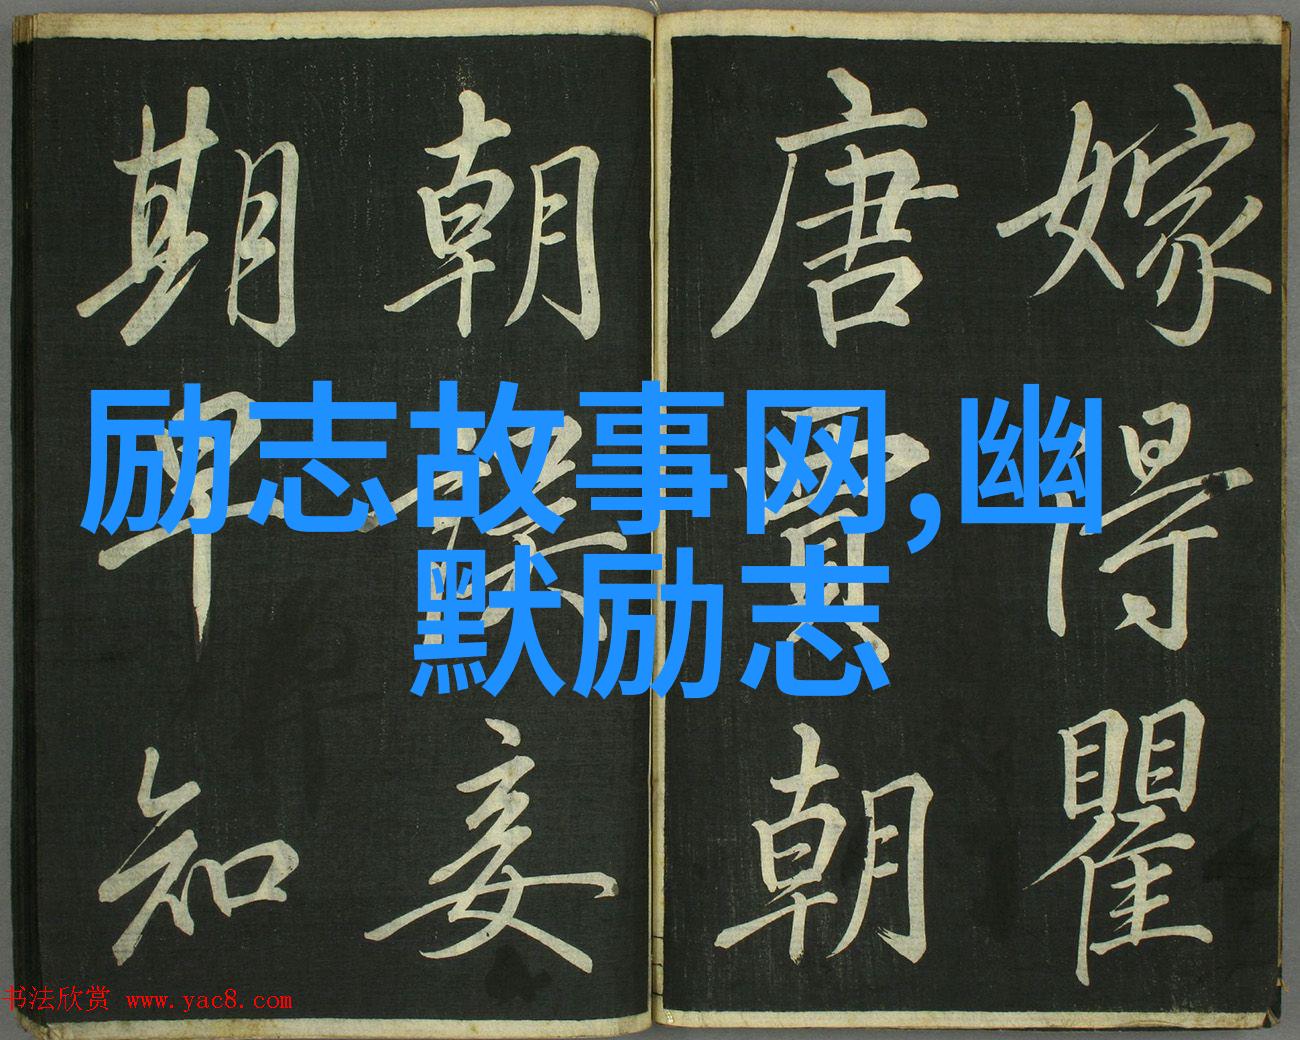 嫁得瞿
唐賈朝
朝誤妾
期早知
励志故事网,幽
默励志
书法欣赏 www.yac8.com